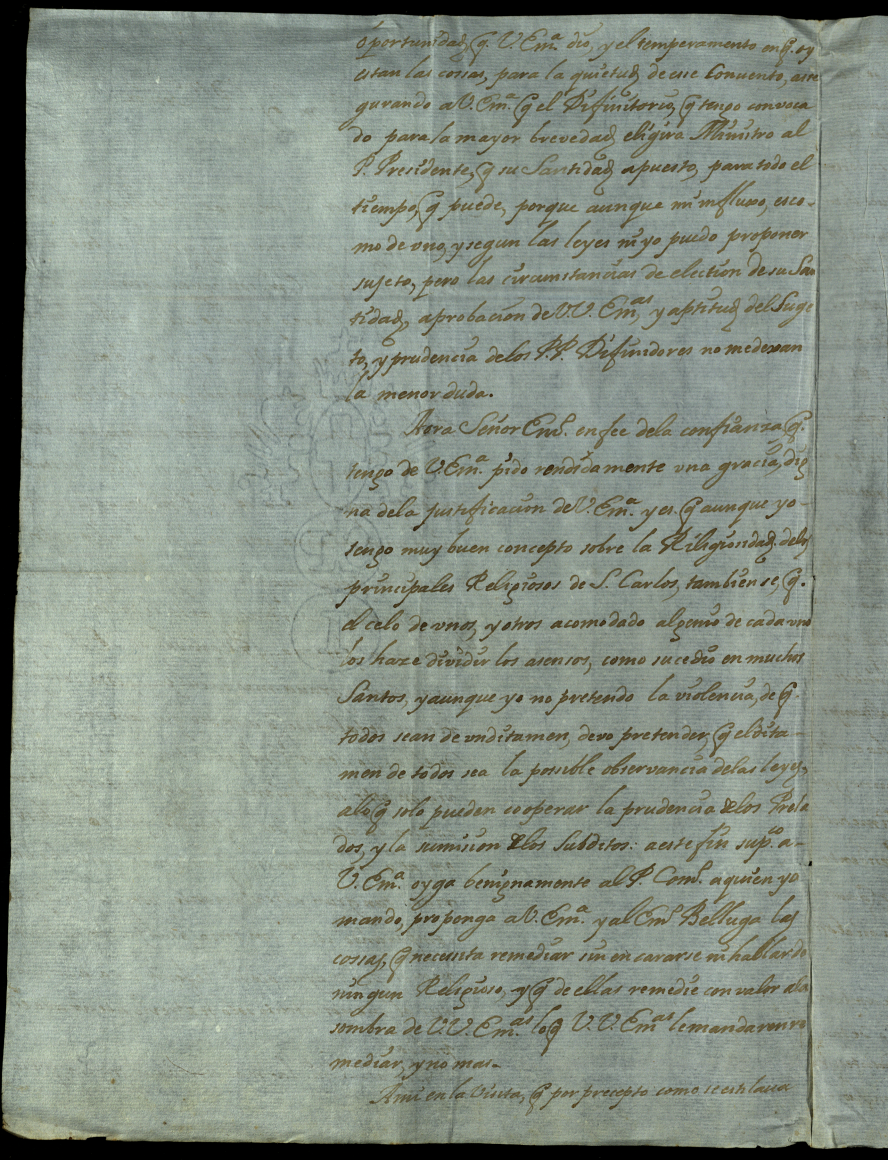 oportunidad, q. V. Em.ª dio, y el temperamento en q. oy
estan las cossas, para la quietud de ese Convento, asse
gurando a V. Em.ª q el Difinitorio, q tengo convoca
do para la mayor brevedad eligira Ministro al
P. Presidente, q su Santidad a puesto, para todo el
tiempo, q puede, porque aunque mi influxo, es co-
mo de vno, y segun las leyes ni yo puedo proponer
sujeto, pero las circumstancias de election de su San
tidad, aprobacion de VV. Em.as y aptitud del Suge
to, y prudencia de los PP. Difinidores no me dexan
la menor duda.
Aora Señor Em.º en fee de la confianza q.
tengo de V. Em.ª pido rendidamente vna gracia, dig
na de la justificacion de V. Em.ª y es q aunque yo
tengo muy buen concepto sobre la Religiosidad de los
principales Religiosos de S. Carlos, tambien se, q.
el celo de vnos, y otros acomodado al genio de cada vno
los haze dividir los asensos, como sucedio en muchos
Santos, y aunque yo no pretendo la violencia, de q.
todos sean de vn dictamen, devo pretender, q el dicta-
men de todos sea la possible observancia de las leyes,
a lo q solo pueden cooperar la prudencia de los Prela
dos, y la sumision de los subditos: a este fin sup.co a-
V. Em.ª oyga benignamente al P. Com.º a quien yo
mando, proponga a V. Em.ª y al Em.º Belluga las
cossas, q necesita remediar sin encararse ni hallar do
ningun Religioso, y q de ellas remedie con valor a la
sombra de V.V. Em.as lo q V.V. Em.as le mandaren re
mediar, y no mas.
A mi en la visita, q por precepto como se estilava